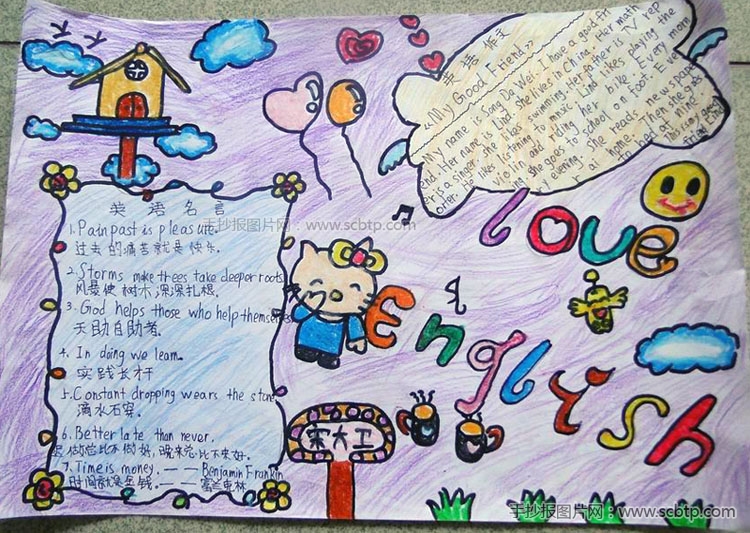 英语作文
《My Good Friend》
My name is Song Da Wei. I have a good fri
end. Her name is Lind. She lives in China. Her math
er is a singer. She likes swimming. Her father is TV rep
orter. He likes listening to music. Lind likes playing the
violin and riding her bike. Every morn
she goes to school on foot. Eve
ry evening she reads newspape
at home. Then she goes
to bed at nine
This is my good
friend Lind
英语名言
1. Pain past is pleasure.
过去的痛苦就是快乐.
2. Storms make trees take deeper roots
风暴使树木深深扎根.
3. God helps those who help themselves
天助自助者.
4. In doing we learn.
实践长才
5. Constant dropping wears the stone
滴水石穿.
6. Better late than never.
做总比不做好,晚来总比不来好.
7. Time is money. —— Benjamin Frankin
时间就是金钱. —— 富兰克林
love
English
宋大卫
手抄报图片网:www.scbtp.com
手抄报图片网:www.scbtp.com